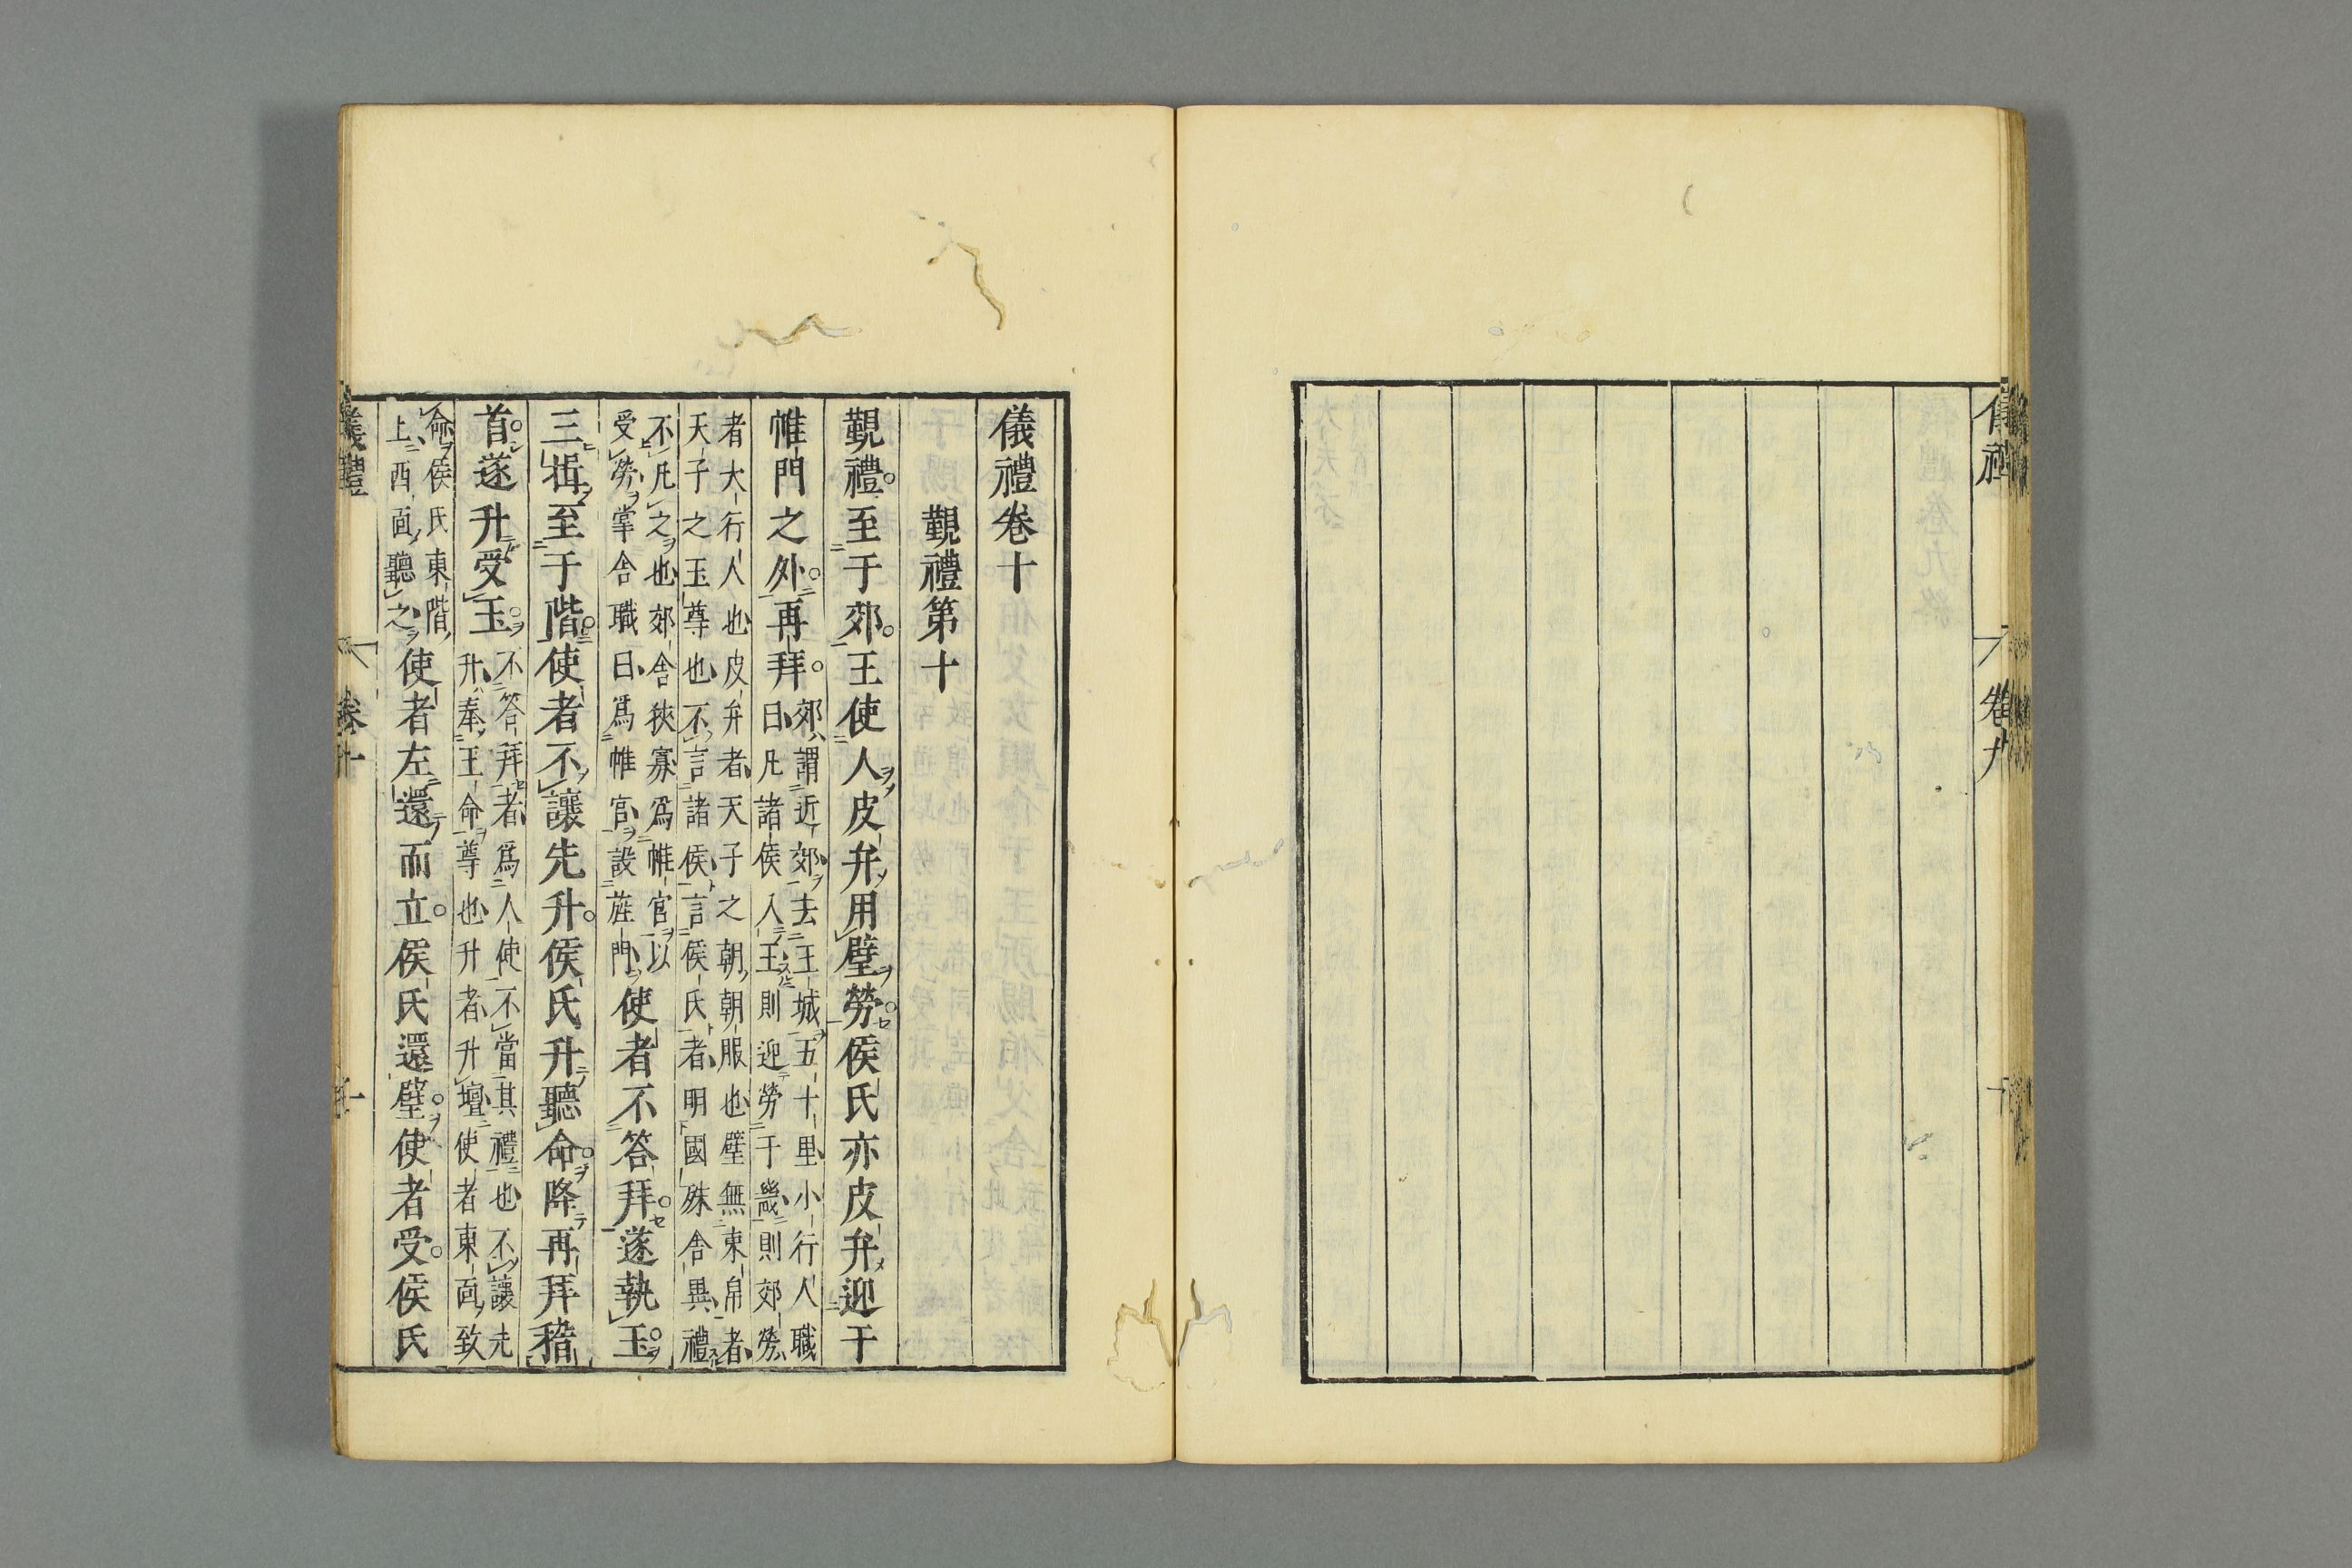 儀禮
卷九
儀禮卷十
覲禮第十
覲禮。至于郊。王使人皮弁用璧勞。侯氏亦皮弁迎于
帷門之外。再拜。郊謂近郊去王城五十里小行人職
曰凡諸侯入王則迎勞于畿則郊勞
者大行人也皮弁者天子之朝朝服也璧無束帛者
天子之玉尊也不言諸侯言侯氏者明國殊舍異禮
不凡之也郊舍狹寡爲帷官以
受勞掌舍職曰爲帷官設旌門使者不答拜。遂執玉。
三揖至于階。使者不讓先升。侯氏升聽命。降再拜稽
首。遂升受玉。不答拜者爲人使不當其禮也不讓先
升奉王命尊也升者升壇使者東面致
命侯氏東階
上西面聽之使者左還而立。侯氏還璧。使者受。侯氏
儀禮
卷十